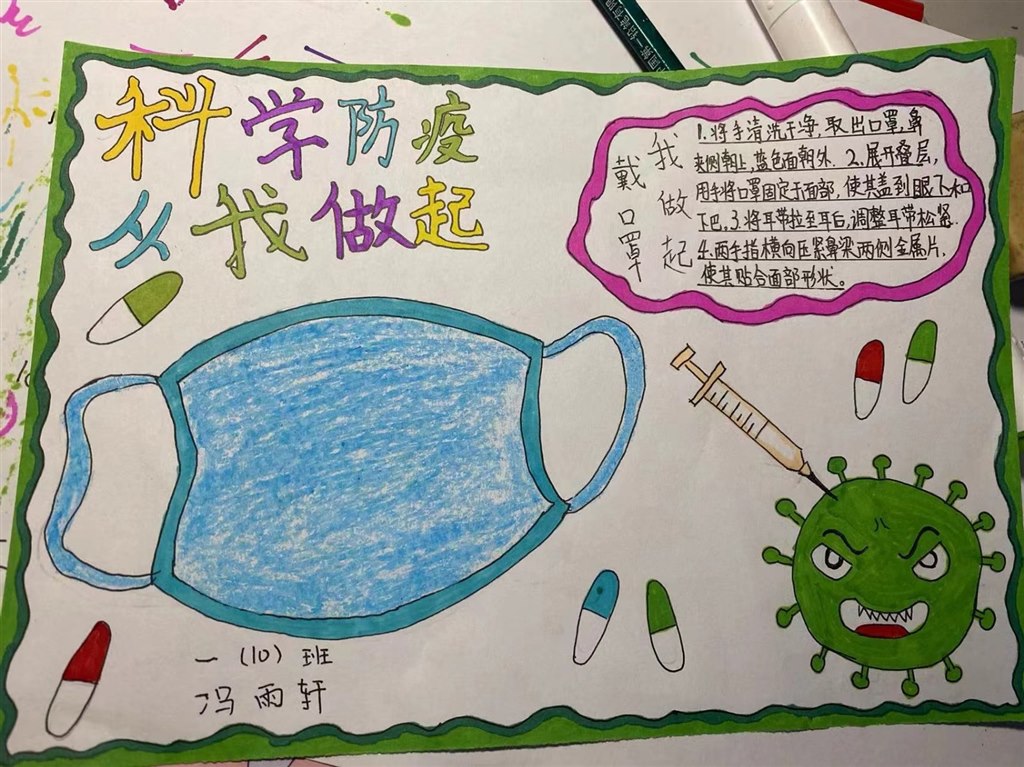 科学防疫
从我做起
戴口罩
我做起
1.将手清洗干净,取出口罩,鼻
夹侧朝上,蓝色面朝外.2.展开叠层,
用手将口罩固定于面部,使其盖到眼下和
下巴.3.将耳带拉至耳后,调整耳带松紧.
4.两手指横向压紧鼻梁两侧金属片,
使其贴合面部形状。
一(10)班
冯雨轩